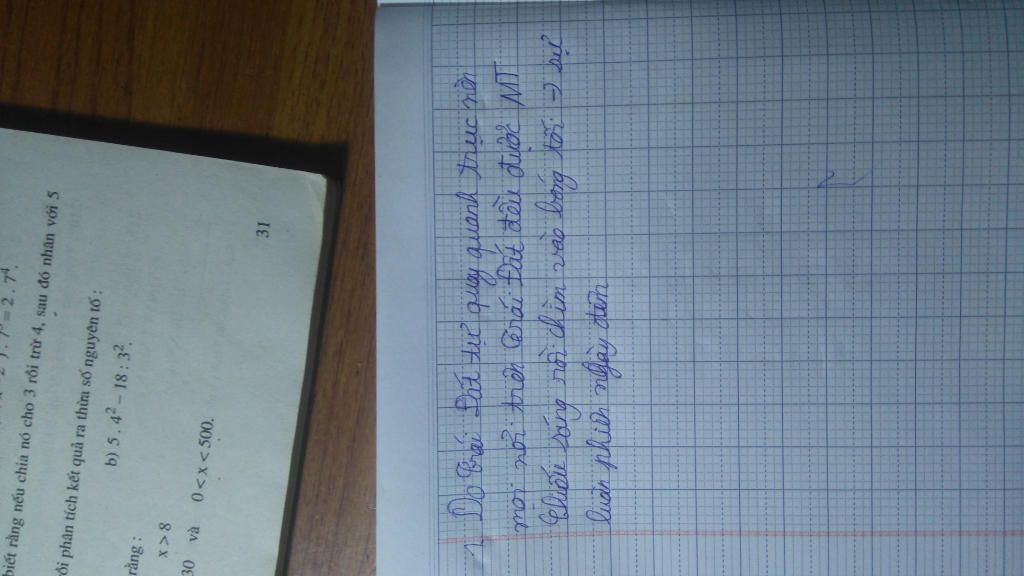 biết rằng nếu chia nó cho 3 rồi trừ 4, sau đó nhân với 5
7⁵ = 2 . 7⁴.
ồi phân tích kết quả ra thừa số nguyên tố :
b) 5 . 4² – 18 : 3².
rằng :
x > 8
30 và 0 < x < 500.
31
1, Do Trái Đất tự quay quanh trục nên
mọi nơi trên Trái Đất đều được MT
Chiếu sáng rồi chìm vào bóng tối → sự
luân phiên ngày đêm